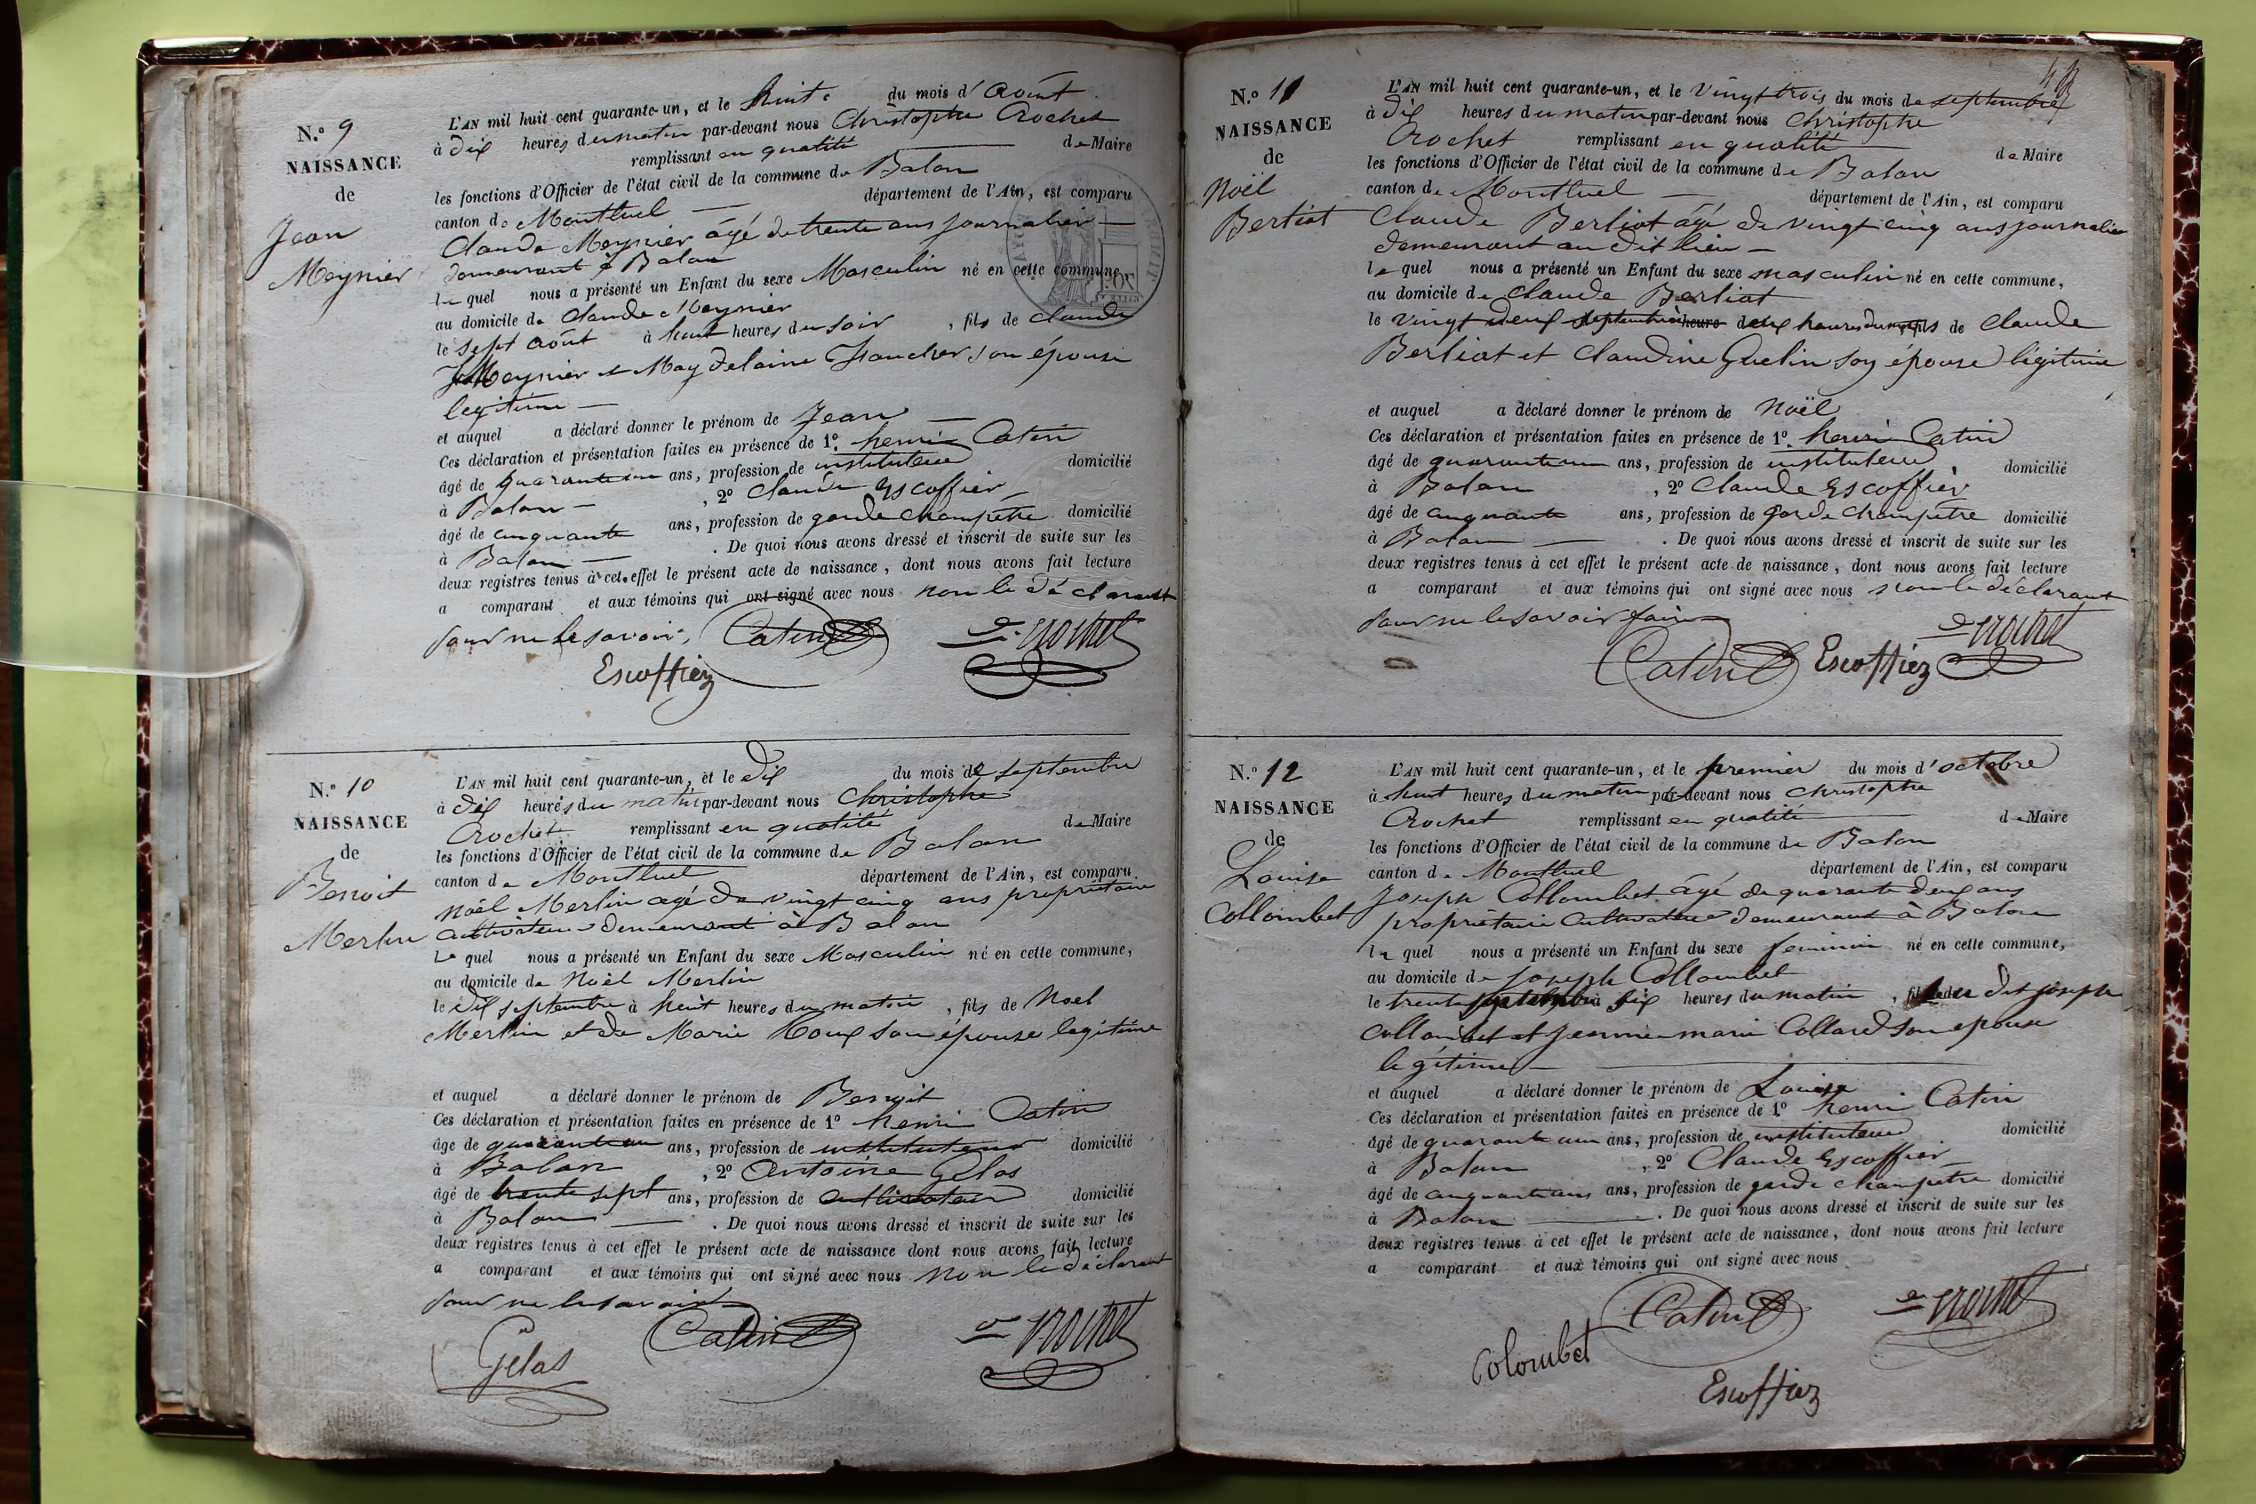 N.º 9
NAISSANCE
de
Jean
Meynier
L'AN mil huit cent quarante-un, et le huit du mois d'août
à dix heures du matin par-devant nous Christophe Crochet
remplissant en qualité de Maire
les fonctions d'Officier de l'état civil de la commune de Balan
canton de Montluel département de l'Ain, est comparu
Claude Meynier âgé de trente ans journalier
demeurant à Balan
le quel nous a présenté un Enfant du sexe Masculin né en cette commune,
au domicile de Claude Meynier
le sept août à huit heures du soir, fils de Claude
Meynier et Magdelaine son épouse
legitime
et auquel a déclaré donner le prénom de Jean
Ces déclaration et présentation faites en présence de 1º. henri Catin
âgé de quarante un ans, profession de instituteur domicilié
à Balan, 2º Claude Escoffier
âgé de cinquante ans, profession de garde champêtre domicilié
à Balan. De quoi nous avons dressé et inscrit de suite sur les
deux registres tenus à cet effet le présent acte de naissance, dont nous avons fait lecture
a comparant et aux témoins qui ont signé avec nous non le déclarant
pour ne le savoir. Catin Crochet
Escoffier
N.º 10
NAISSANCE
de
Benoit
Merlin
L'AN mil huit cent quarante-un, et le dix du mois de septembre
à dix heures du matin par-devant nous Christophe
Crochet remplissant en qualité de Maire
les fonctions d'Officier de l'état civil de la commune de Balan
canton de Montluel département de l'Ain, est comparu
Noël Merlin agé de vingt cinq ans propriétaire
cultivateur demeurant à Balan
le quel nous a présenté un Enfant du sexe Masculin né en cette commune,
au domicile de Noël Merlin
le dix septembre à huit heures du matin, fils de Noel
Merlin et de Marie Roux son épouse legitime
et auquel a déclaré donner le prénom de Benoit
Ces déclaration et présentation faites en présence de 1º henri Catin
âge de quarante un ans, profession de instituteur domicilié
à Balan, 2º Antoine Gelas
âgé de trente sept ans, profession de cultivateur domicilié
à Balan. De quoi nous avons dressé et inscrit de suite sur les
deux registres tenus à cet effet le présent acte de naissance dont nous avons fait lecture
a comparant et aux témoins qui ont signé avec nous non le déclarant
pour ne le savoir
Gelas Catin Crochet
N.º 11
NAISSANCE
de
Noël
Berliat
L'AN mil huit cent quarante-un, et le vingt trois du mois de septembre
à dix heures du matin par-devant nous Christophe
Crochet remplissant en qualité de Maire
les fonctions d'Officier de l'état civil de la commune de Balan
canton de Montluel département de l'Ain, est comparu
Claude Berliat âgé de vingt cinq ans journalier
demeurant au dit lieu
le quel nous a présenté un Enfant du sexe masculin né en cette commune,
au domicile de Claude Berliat
le vingt deux septembre à deux heures du fils de Claude
Berliat et Claudine Guelin son épouse légitime
et auquel a déclaré donner le prénom de Noël
Ces déclaration et présentation faites en présence de 1º. henri Catin
âgé de quarante un ans, profession de instituteur domicilié
à Balan, 2º Claude Escoffier
âgé de cinquante ans, profession de garde champêtre domicilié
à Balan. De quoi nous avons dressé et inscrit de suite sur les
deux registres tenus à cet effet le présent acte de naissance, dont nous avons fait lecture
a comparant et aux témoins qui ont signé avec nous non le déclarant
pour ne le savoir faire
Catin Escoffier Crochet
N.º 12
NAISSANCE
de
Louise
Collombet
L'AN mil huit cent quarante-un, et le premier du mois d'octobre
à huit heures du matin par-devant nous Christophe
Crochet remplissant en qualité de Maire
les fonctions d'Officier de l'état civil de la commune de Balan
canton de Montluel département de l'Ain, est comparu
Joseph Collombet âgé de quarante deux ans
propriétaire cultivateur demeurant à Balan
le quel nous a présenté un Enfant du sexe feminin né en cette commune,
au domicile de Joseph Collombet
le trente septembre à six heures du matin, du dit joseph
Collombet et jeanne marie Collard son epouse
légitime
et auquel a déclaré donner le prénom de Louise
Ces déclaration et présentation faites en présence de 1º henri Catin
âgé de quarante un ans, profession de instituteur domicilié
à Balan, 2º Claude Escoffier
âgé de cinquante ans ans, profession de garde champêtre domicilié
à Balan. De quoi nous avons dressé et inscrit de suite sur les
deux registres tenus à cet effet le présent acte de naissance, dont nous avons fait lecture
a comparant et aux témoins qui ont signé avec nous
Catin Crochet
Colombet
Escoffier